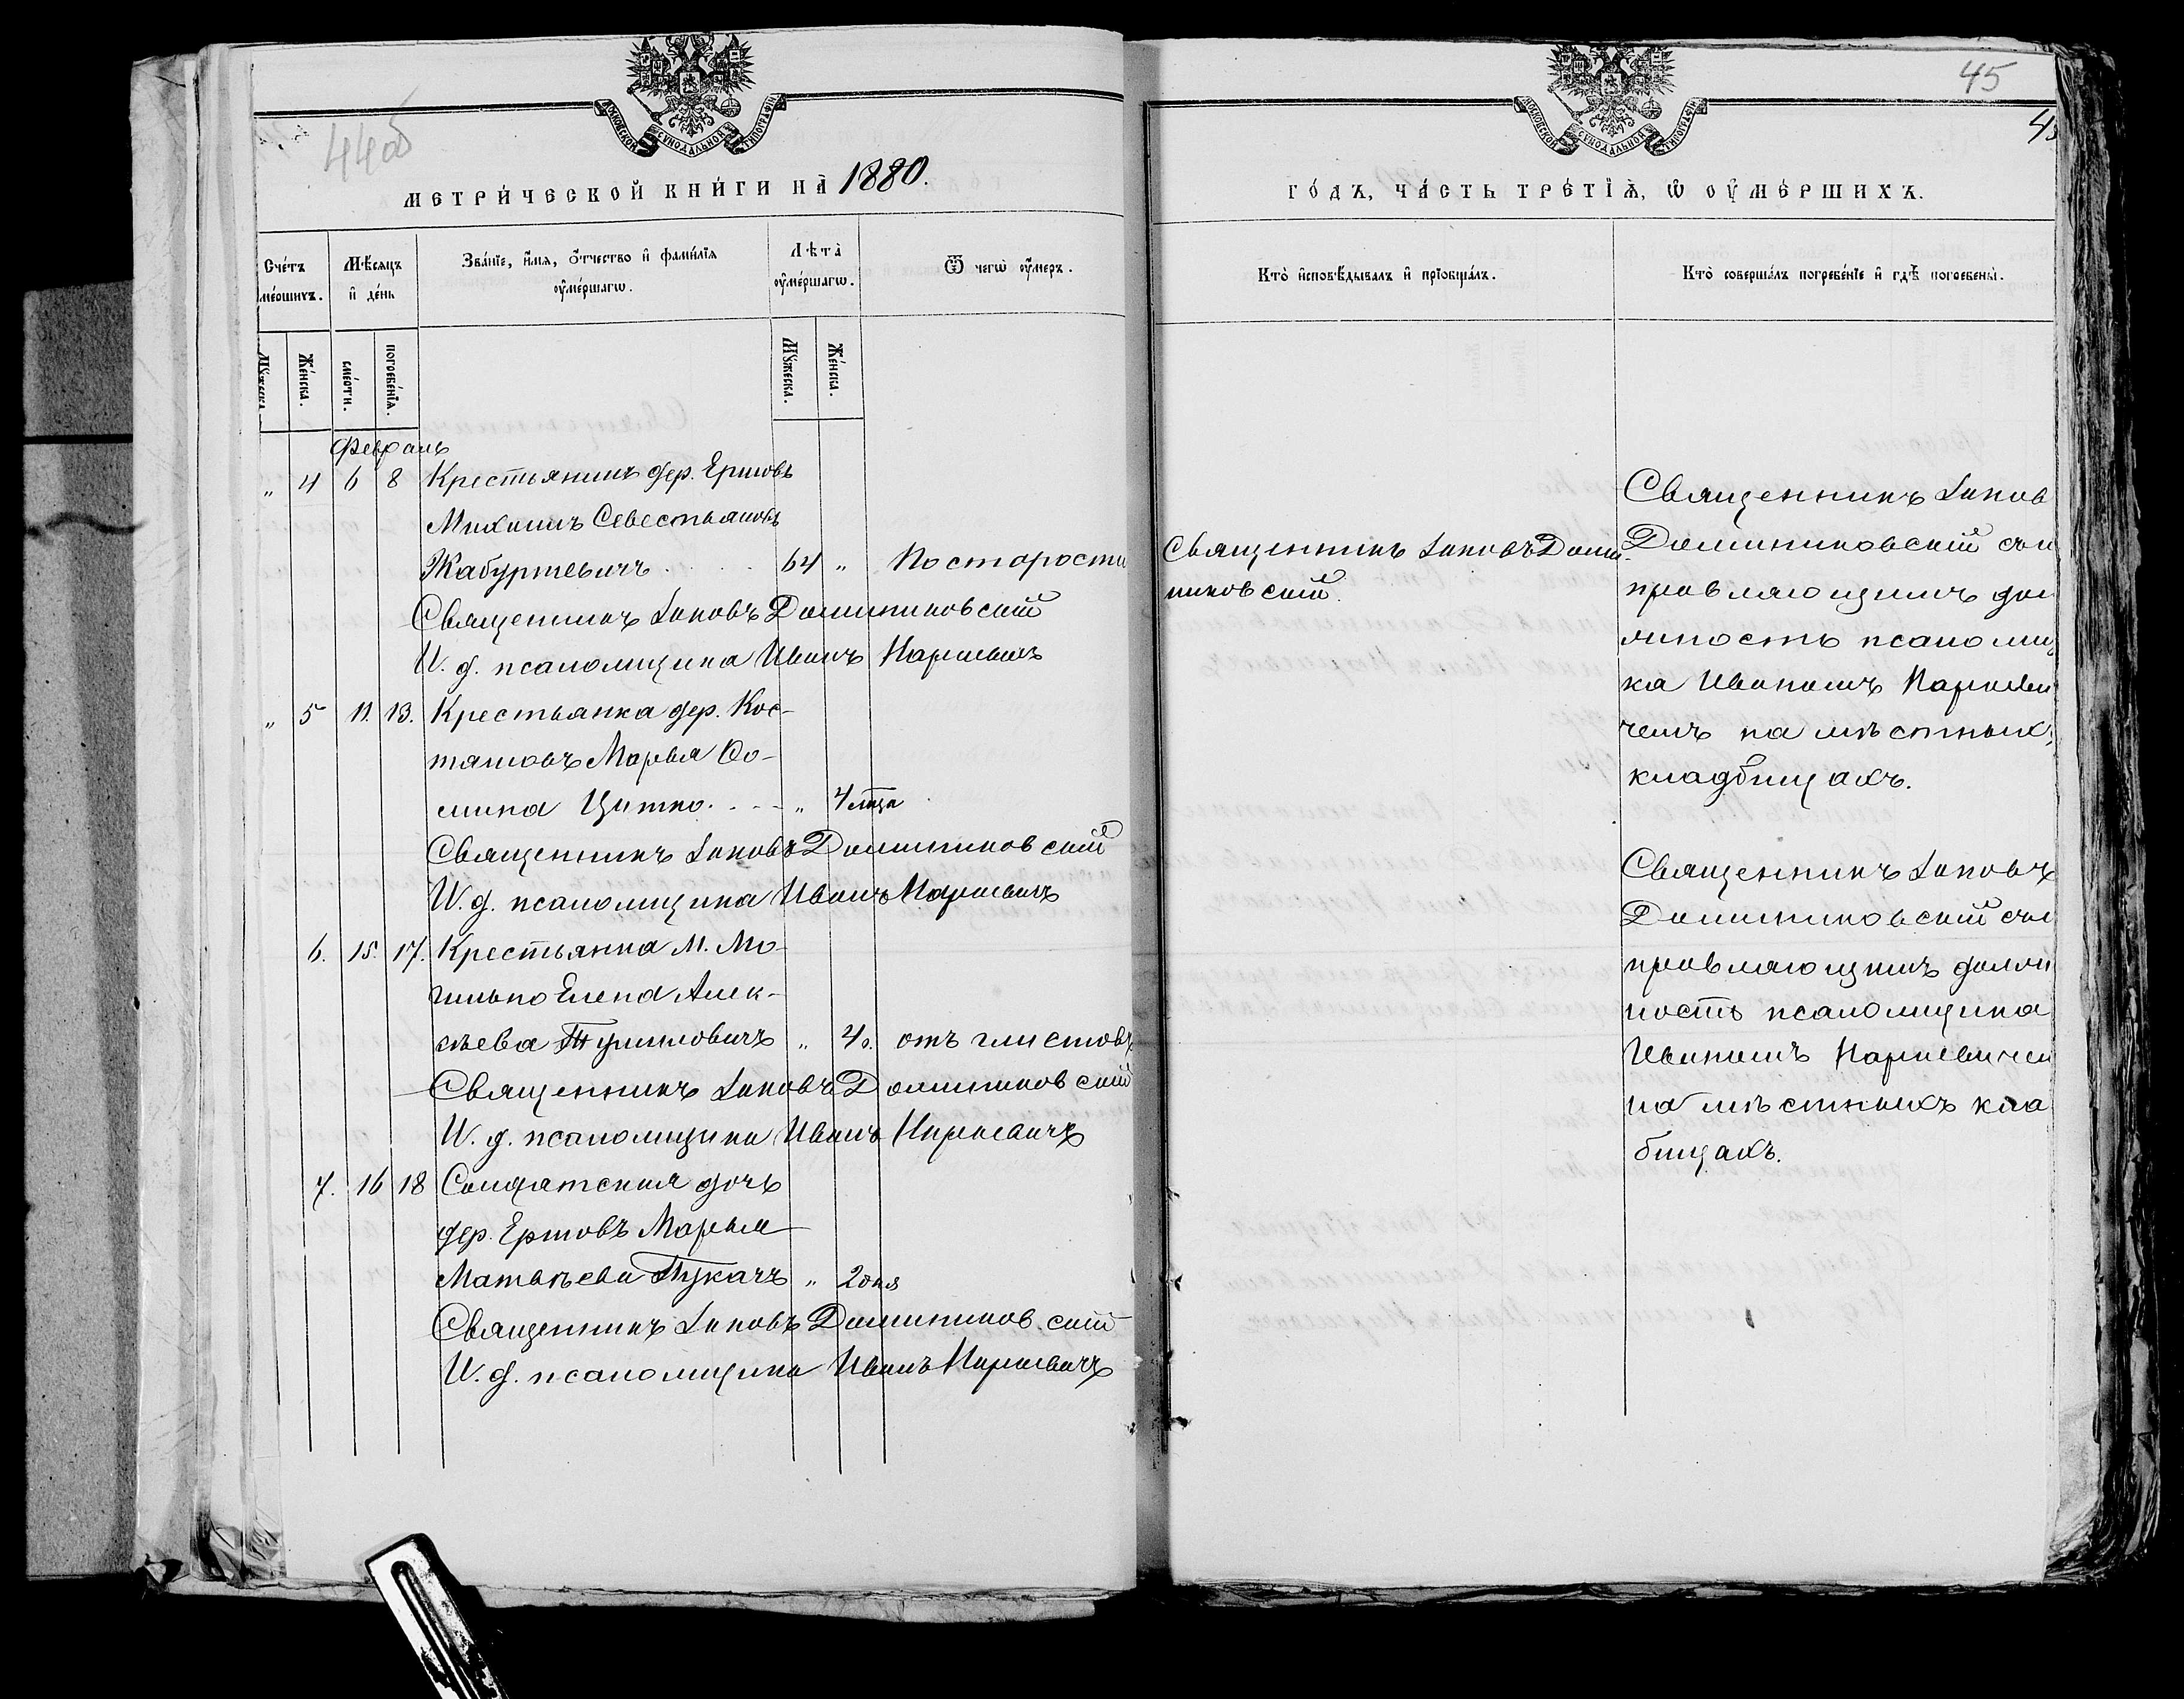 44об
МОСКОВСКОЙ СУНОДАЛЬНОЙ ТИПОГРАФІИ
МЕТРИ́ЧЕСКОЙ КНИ́ГИ НА̀ 1880.
Сче́тъ ме́ршихъ.
Мѣ́сяцъ и҆ де́нь
Зва́нїе, и҆́мя, ѻ҆́тчество и҆ фами́лїя ᲂу҆ме́ршагѡ.
Лѣ́та ᲂу҆ме́ршагѡ.
Ѿ чегѡ̀ ᲂу҆́меръ.
Мꙋ́жеска.
Же́нска.
сме́рти.
погребе́нїѧ.
Мꙋ́жеска.
Же́нска.
Февраль
„ 4 6 8 Крестьянинъ дер. Ершовъ
Михаилъ Севестьяновъ
Жабуртевичъ 64 „ По старости
Священникъ Іаковъ Доминиковскій
И. д. псаломщика Иванъ Наркевичъ
„ 5 11. 13. Крестьянка дер. Кос-
ташовъ Марья Ѳо-
мина Цитко. - - - „ 4 мца
Священникъ Іаковъ Доминиковскій
И. д. псаломщика Иванъ Наркевичъ
6. 15. 17. Крестьянка м. Мо-
гильно Елена Алек-
сѣева „ 40. отъ глистовъ
Священникъ Іаковъ Доминиковскій
И. д. псаломщика Иванъ Наркевичъ
7. 16 18 Солдатская дочь
дер. Ершовъ Марья
Матвѣева Пукачъ „ 2 дня
Священникъ Іаковъ Доминиковскій
И. д. псаломщика Иванъ Наркевичъ
45
МОСКОВСКОЙ СУНОДАЛЬНОЙ ТИПОГРАФІИ
ГО́ДЪ, ЧА́СТЬ ТРЕ́ТЇѦ, Ѡ҆ ОУ҆МЕ́РШИХЪ.
Кто̀ и҆сповѣ́дывалъ и҆ прїобща́лъ.
Кто̀ соверша́лъ погребе́нїе и҆ гдѣ̀ погребены̀.
Священникъ Іаковъ Доми-
никовскій.
Священникъ Іаков
Доминиковскій съ и
правляющимъ дол
жность псаломщ
ка Иваномъ Наркеви
чемъ на мѣстныхъ
кладбищахъ.
Священникъ Іаковъ
Доминиковскій съ и
правляющимъ долж
ность псаломщика
Иваномъ Наркевичем
на мѣстныхъ кла
бищахъ.